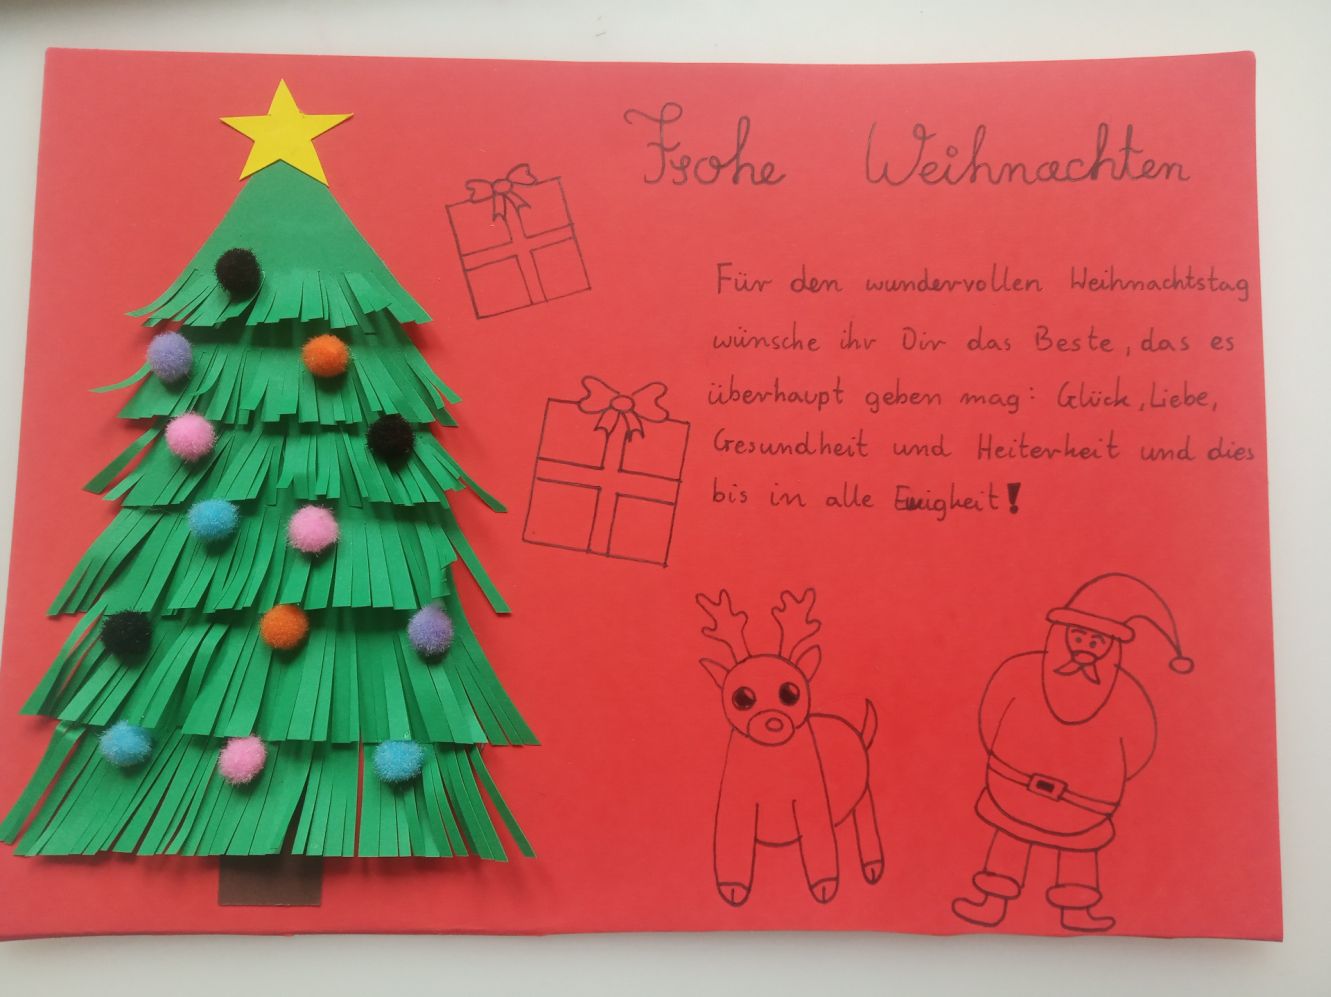 Frohe Weihnachten
Für den wundervollen Weihnachtstag
wünsche ihr Dir das Beste, das es
überhaupt geben mag: Glück, Liebe,
Gesundheit und Heiterkeit und dies
bis in alle Ewigkeit!